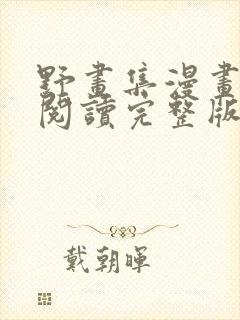 野畫集漫畫
閱讀完整版
戴朝暉